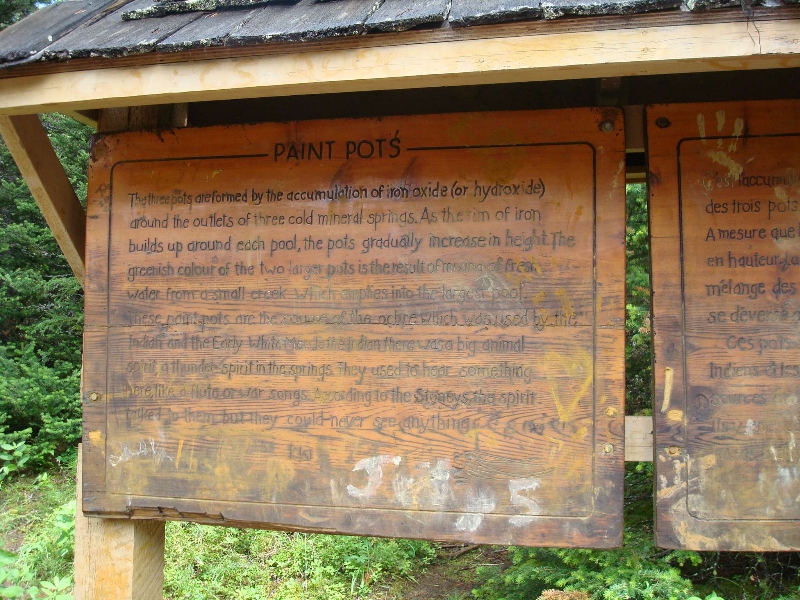 PAINT POTS
The three pots are formed by the accumulation of iron oxide (or hydroxide)
around the outlets of three cold mineral springs. As the rim of iron
builds up around each pool, the pots gradually increase in height. The
greenish colour of the two larger pots is the result of mixing of fresh
water from a small creek which empties into the largest pool.
These paint pots are the source of the ochre which was used by the
Indian and the Early White Man. To the Indian there was a big animal
spirit, a thunder spirit in the springs. They used to hear something
here, like a flute or war songs. According to the Stoneys, this spirit
talked to them but they could never see anything
des trois pots
A mesure que
en hauteur. La
mélange des
se déverse
Ces pots
Indiens
sources